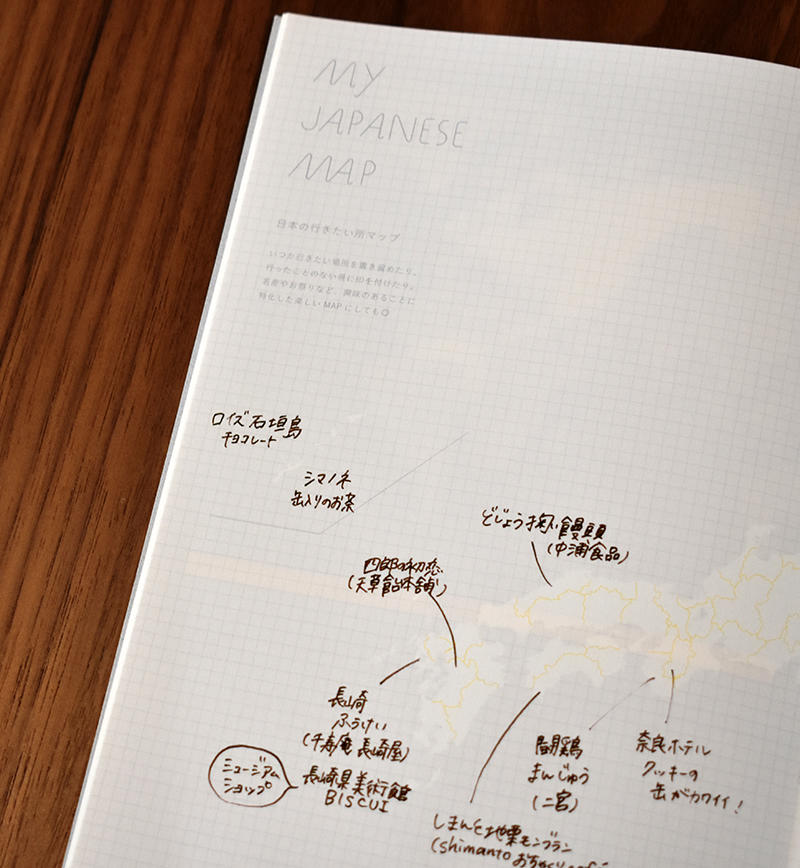 MY
JAPANESE
MAP
日本の行きたい所マップ
いつか行きたい場所を書き留めたり、
行ったことのない県に印を付けたり。
名産やお祭りなど、興味のあることに
特化した楽しいMAPにしても◎
ロイズ石垣島
チョコレート
シマノネ
缶入りのお茶
どじょう掬い饅頭
(中浦食品)
四郎の初恋
(天草飴本舗)
長崎
ふうけい
(千寿庵 長崎屋)
ミュージアム
ショップ
長崎県美術館
BISCUI
闘鶏
まんじゅう
(二宮)
奈良ホテル
クッキーの
缶がカワイイ!
しまんと地栗モンブラン
(shimanto おちゃくり